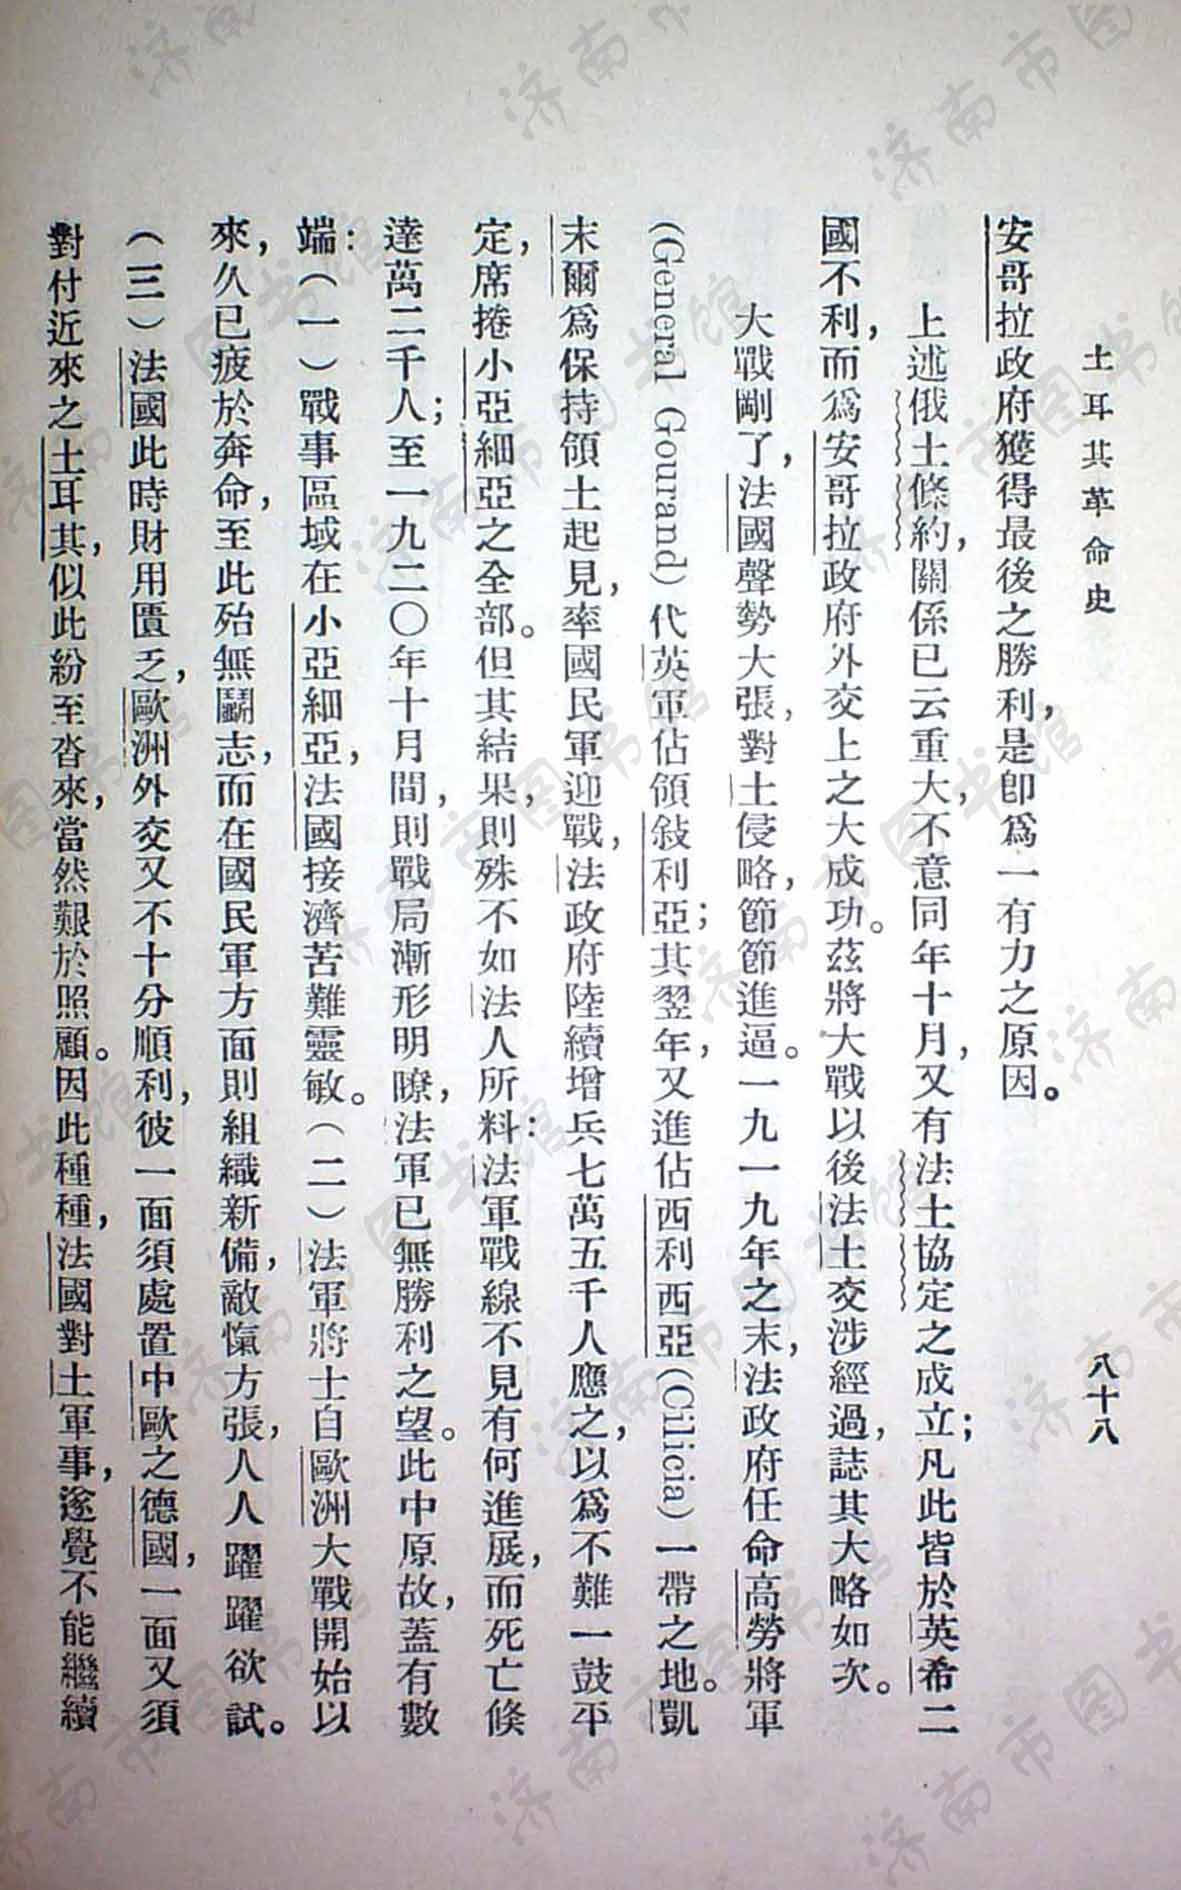 土耳其革命史
八十八
安哥拉政府獲得最後之勝利，是卽爲一有力之原因。
上述俄土條約，關係已云重大，不意同年十月，又有法土協定之成立；凡此皆於英希二
國不利，而爲安哥拉政府外交上之大成功。茲將大戰以後法土交涉經過，誌其大略如次。
大戰剛了，法國聲勢大張，對土侵略，節節進逼。一九一九年之末，法政府任命高勞將軍
(General Gourand)代英軍佔領敍利亞；其翌年，又進佔西利西亞(Cilicia)一帶之地。凱
末爾爲保持領土起見，率國民軍迎戰，法政府陸續增兵七萬五千人應之，以爲不難一鼓平
定，席捲小亞細亞之全部。但其結果，則殊不如法人所料：法軍戰線不見有何進展，而死亡倏
達萬二千人；至一九二〇年十月間，則戰局漸形明瞭，法軍已無勝利之望。此中原故，蓋有數
端：(一)戰事區域在小亞細亞，法國接濟苦難靈敏。(二)法軍將士自歐洲大戰開始以
來，久已疲於奔命，至此殆無鬭志，而在國民軍方面則組織新備，敵愾方張，人人躍躍欲試。
(三)法國此時財用匱乏，歐洲外交又不十分順利，彼一面須處置中歐之德國，一面又須
對付近來之土耳其，似此紛至沓來，當然艱於照顧。因此種種，法國對土軍事，遂覺不能繼續
济南市图书馆